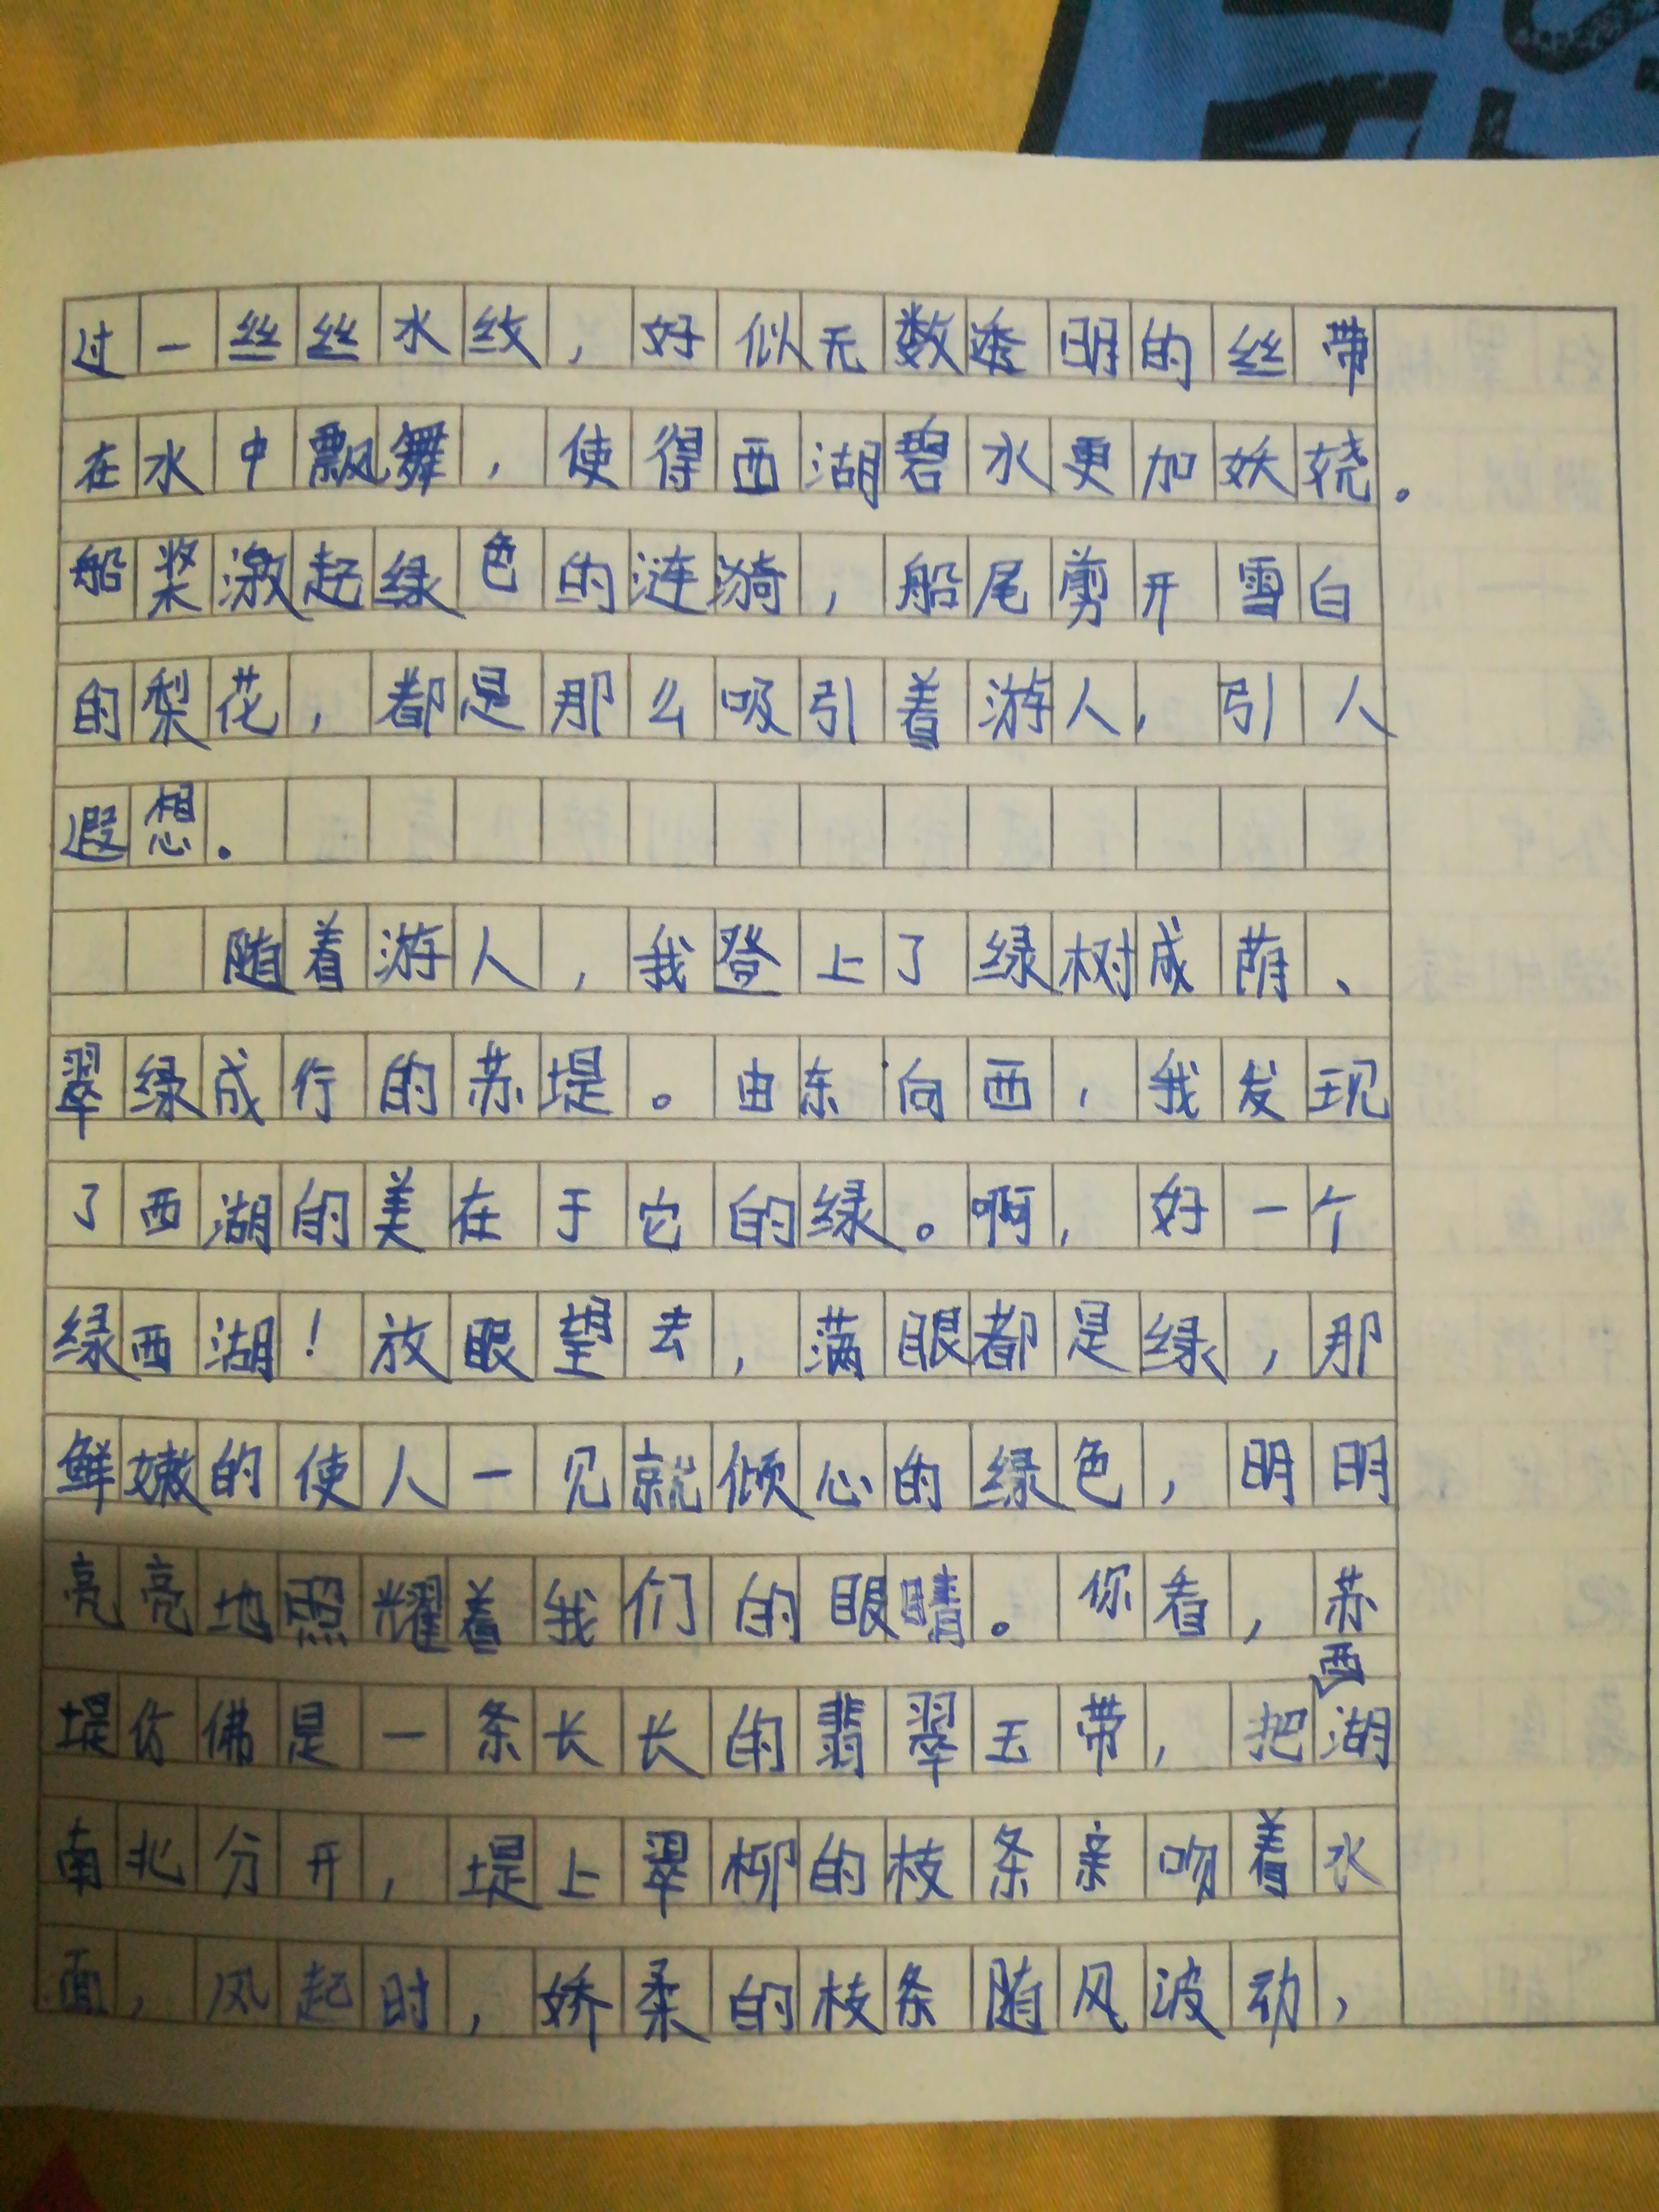 过一丝丝水纹，好似无数透明的丝带
在水中飘舞，使得西湖碧水更加妖娆。
船桨激起绿色的涟漪，船尾剪开雪白
的梨花，都是那么吸引着游人，引人
遐想。
随着游人，我登上了绿树成荫、
翠绿成行的苏堤。由东向西，我发现
了西湖的美在于它的绿。啊，好一个
绿西湖！放眼望去，满眼都是绿，那
鲜嫩的使人一见就倾心的绿色，明明
亮亮地照耀着我们的眼睛。你看，苏
堤仿佛是一条长长的翡翠玉带，把西湖
南北分开，堤上翠柳的枝条亲吻着水
面，风起时，娇柔的枝条随风波动，